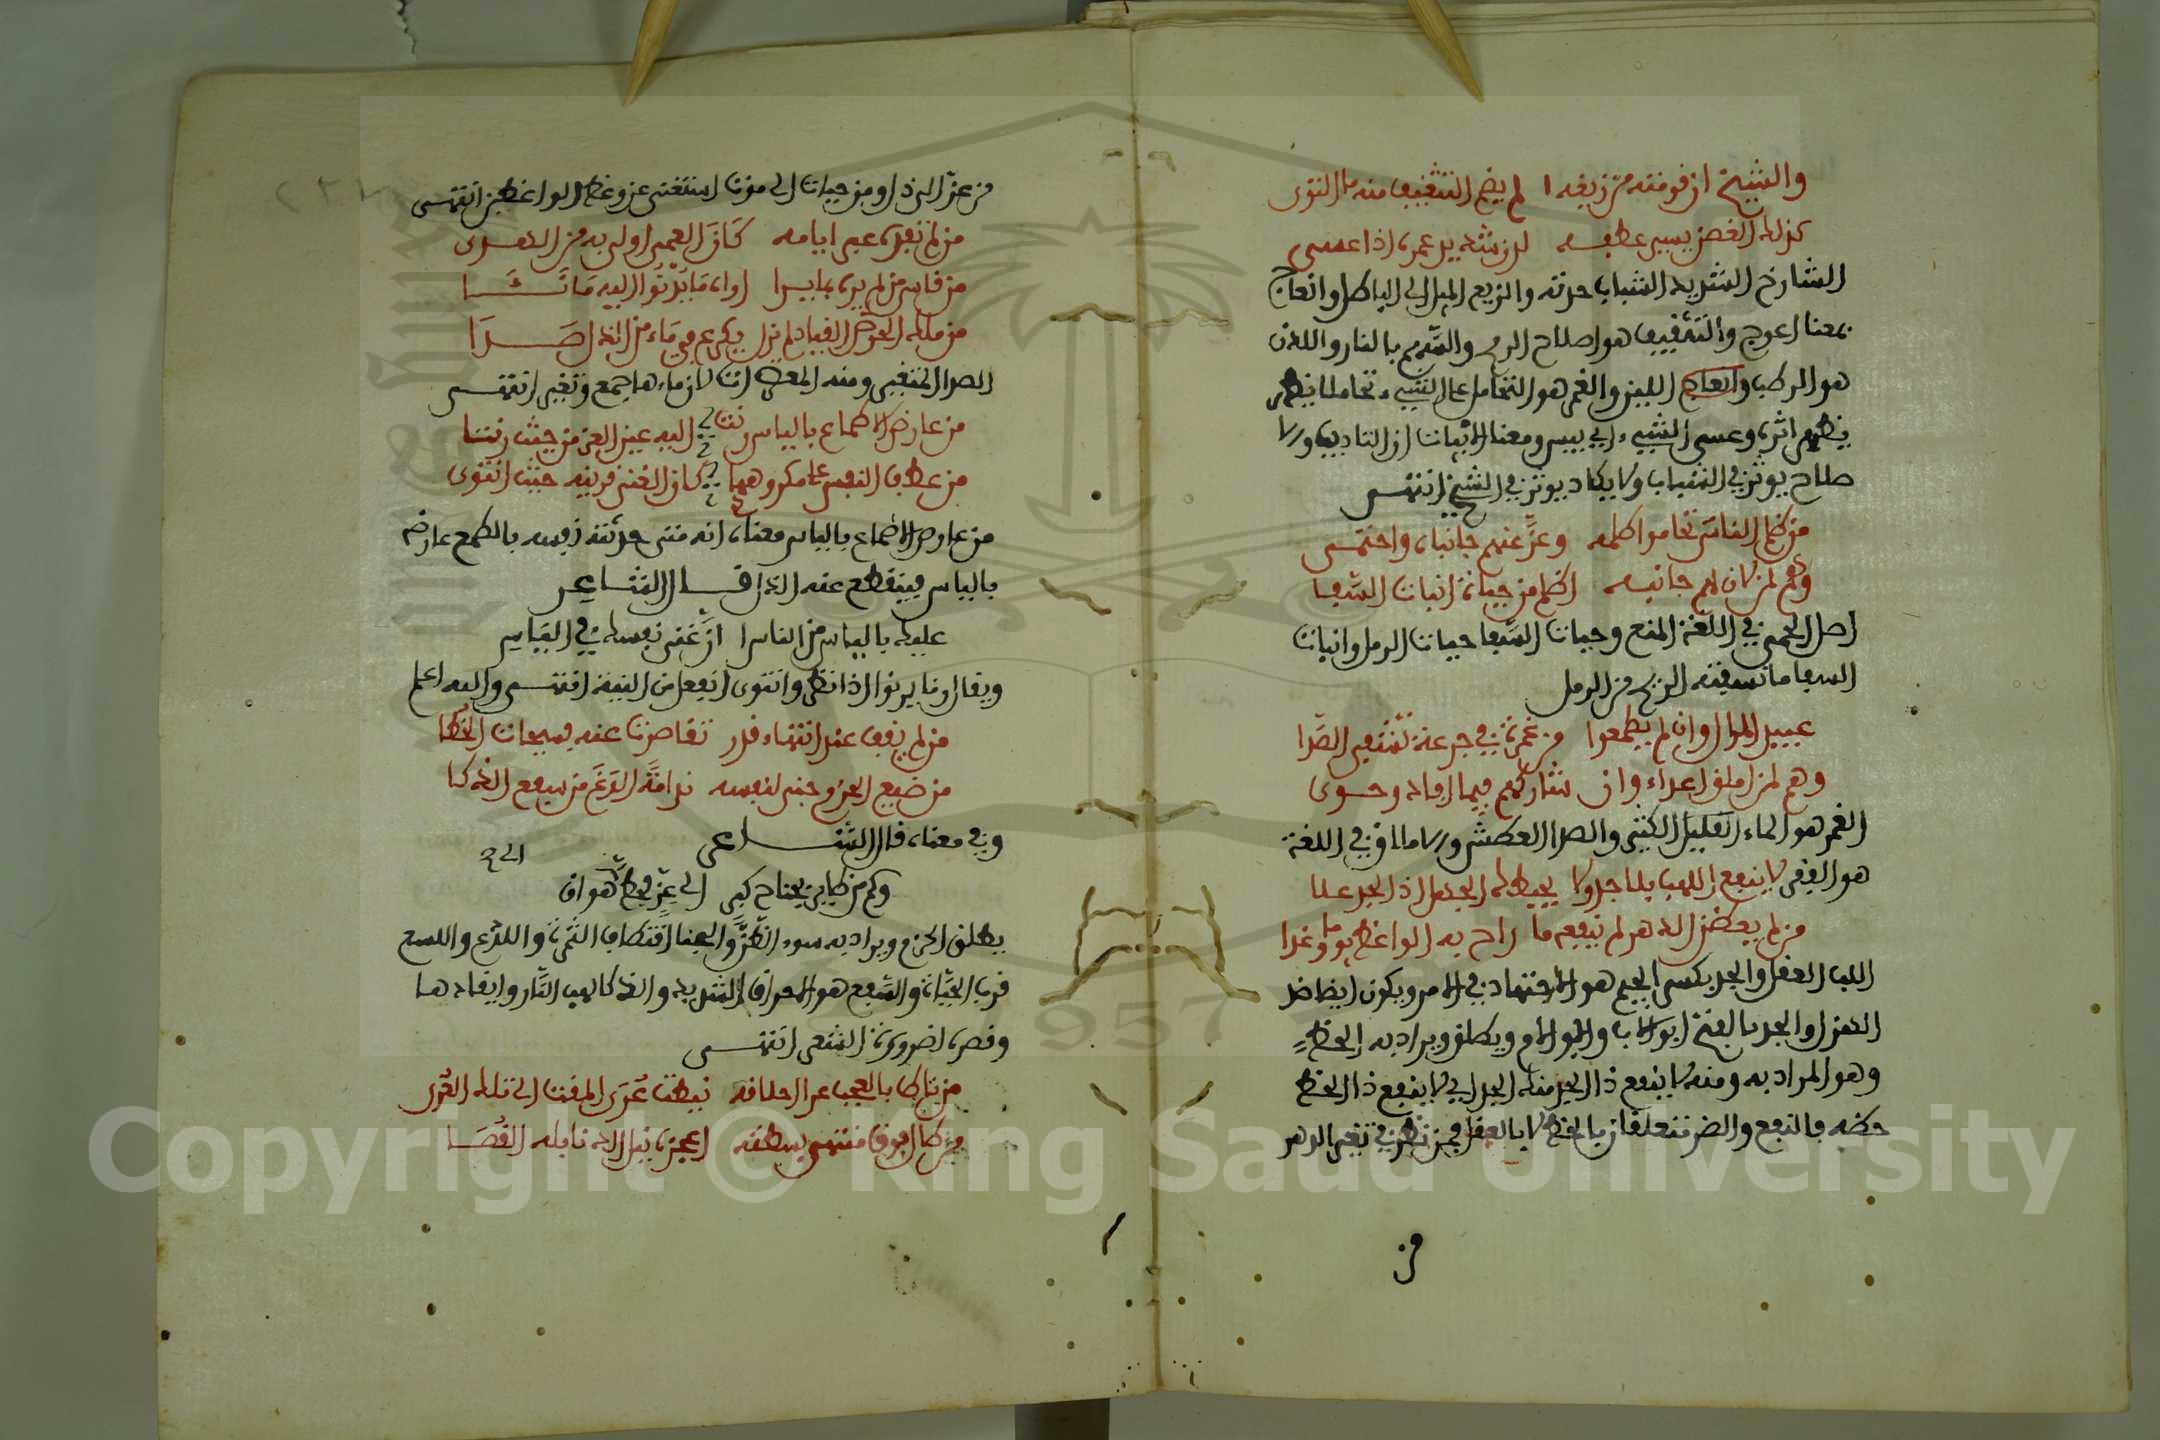 والشيخ ان قومته من زيغه لم يقم التثقيف منه ما التوى
كذلك الغصن يسير عطفه لدن شديد غمزه اذا عسى
الشارخ الشديد الشباب حدته والزيغ الميل الى الباطل وانعاج
بمعنا اعوج والتثقيف هو اصلاح الرمح والتقويم بالنار واللدن
هو الرطب وانعاج اللين والغمز هو التحامل على الشيء تحاملا
يظهر اثره وعسى الشيء اي يبس ومعنا الابيات ان التاديب
صلاح يوثر في الشباب ولا يكاد يوثر في الشيخ انتهى
من ظلم الناس تحاموا ظلمه وعز عنهم جانباه واحتمى
وهم لمن لان لهم جانبه اظلم من حيات انبات السفا
اصل الحمى في اللغة المنع وحيات السفا حيات الرمل وانبات
السفا ما تسفيه الريح من الرمل
عبيد ذي المال وان لم يطمعوا من غمره في جرعة تشفي الصدا
وهم لمن املق اعداء وان شاركهم فيما افاد وحوى
الغمر هو الماء القليل الكثير والصدا العطش والاملاق في اللغة
هو الفقر لا ينفع اللب بلا جد ولا يحطك الجهل اذا الجد علا
من لم يعظه الدهر لم ينفعه ما راح به الواعظ يوما وغدا
اللب العقل والجد بكسر الجيم هو الاجتهاد في الامر ويكون ايضا ضد
الهزل والجد بالفتح ابو الاب وابو الام ويطلق ويراد به الحظ
وهو المراد به ومنه لا ينفع ذا الجد منك الجد اي لا ينفع ذا الحظ
حظه والنفع والضر متعلقان بالحظ لا بالعقل فمن نظر في تغير الدهر
من
من عز الى ذل ومن حيات الى موت استغنى عن وعظ الواعظين انتهى
من لم تفده عبرا ايامه كان العمى اولى به من الهدى
من قاس ما لم يره بما يرا اراه ما يدنو اليه ما نئا
من ملك الحرص القياد لم يزل يكرع في ماء من الذل صرا
الصرا المتغير ومنه المصراة لان ماءها جمع وتغير انتهى
من عارض الاطماع بالياس رنت اليه عين العز من حيث رنا
من عطف النفس على مكروهها كان الغنى قرينه حيث انتوى
من عارض الاطماع بالياس معناه انه متى حدثته نفسه بالطمع عارضه
بالياس فينقطع عنه الذل قال الشاعر
عليك بالياس من الناس ان غنى نفسك في الياس
ويقال رنا يرنوا اذا نظر وانتوى انفعل من النية انتهى والله اعلم
من لم يقف عند انتهاء قدره تقاصرت عنه فسيحات الخطا
من ضيع الحزم جنى لنفسه ندامة الذع من سفع الذكا
وفي معناه قال الشاعر
وكم من طاير يحتاج كبر الى عز فحط هوان
الى ح
يطلق الحزم ويراد به سوء الظن والجنا اقتطاف الثمرة واللذع واللسع
قرب الحيات والسفع هو الاحراق الشديد والذكا لهب النار وايقادها
وقصره لضرورة الشعر انتهى
من ناط بالعجب عرا اخلاقه نيطت عرى المقت الى تلك العرى
من طال فوق منتهى بسطته اعجزه نيل الدنا بله القصا